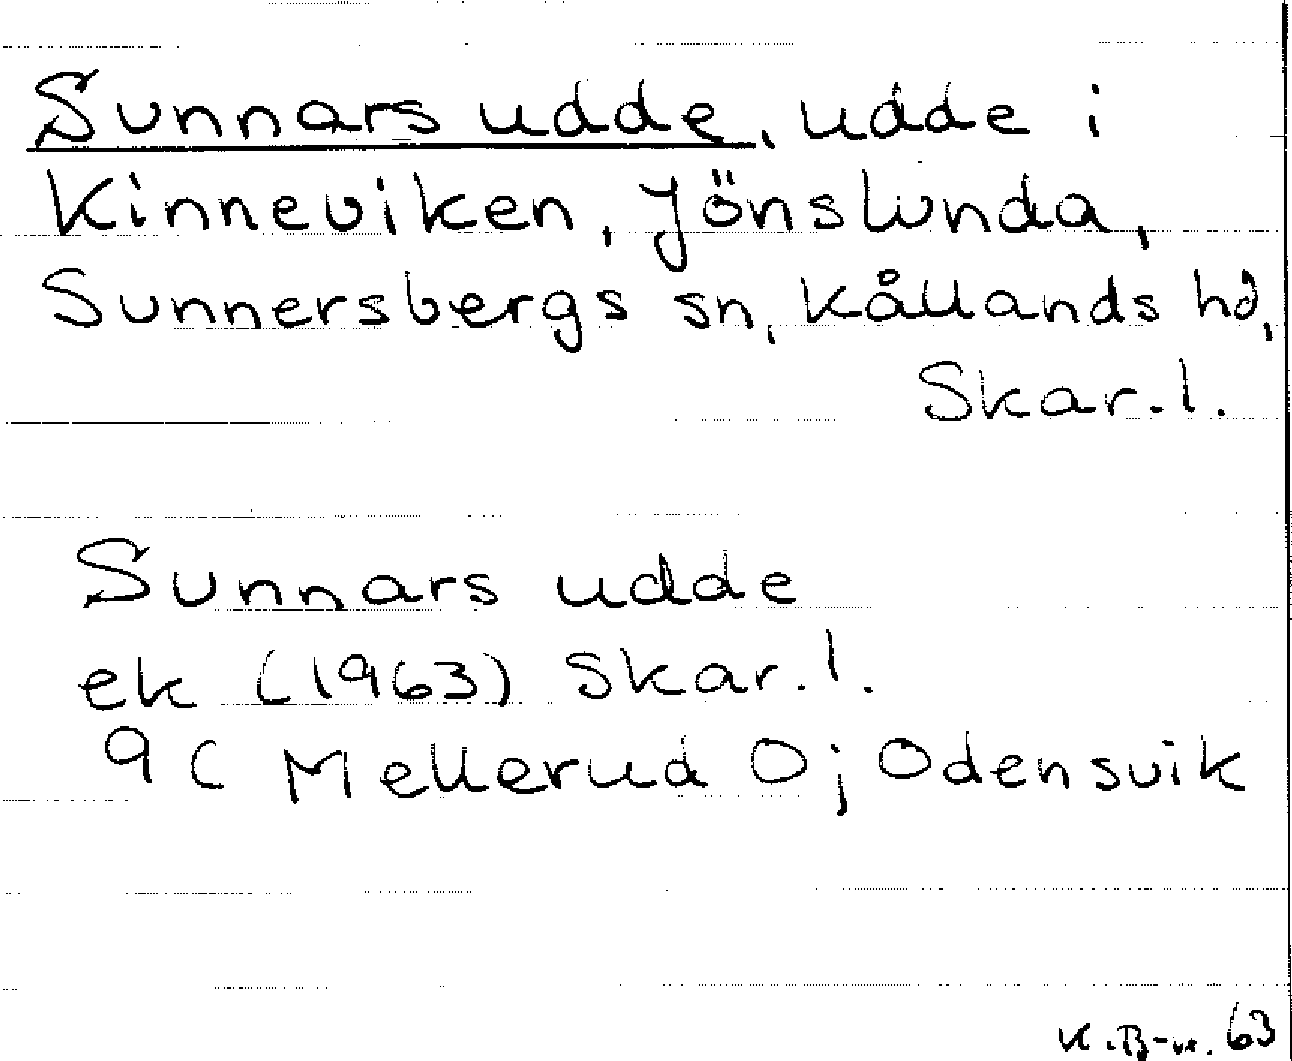 Sunnars udde, udde i
Kinneviken, Jönslunda,
Sunnersbergs sn, Kållands hd,
Skar. l.
Sunnars udde
ek (1963) Skar. l.
9C Mellerud O; Odensvik
K.B-m. 63